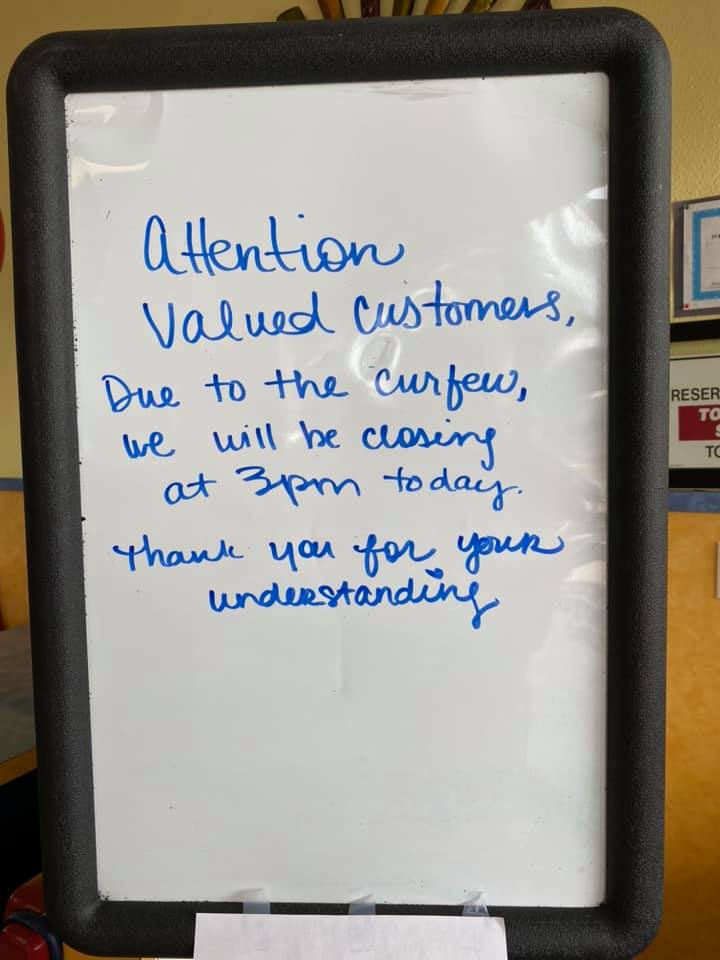 Attention
Valued Customers,
Due to the curfew,
we will be closing
at 3pm today.
Thank you for your
understanding
RESER
TO
S
TO